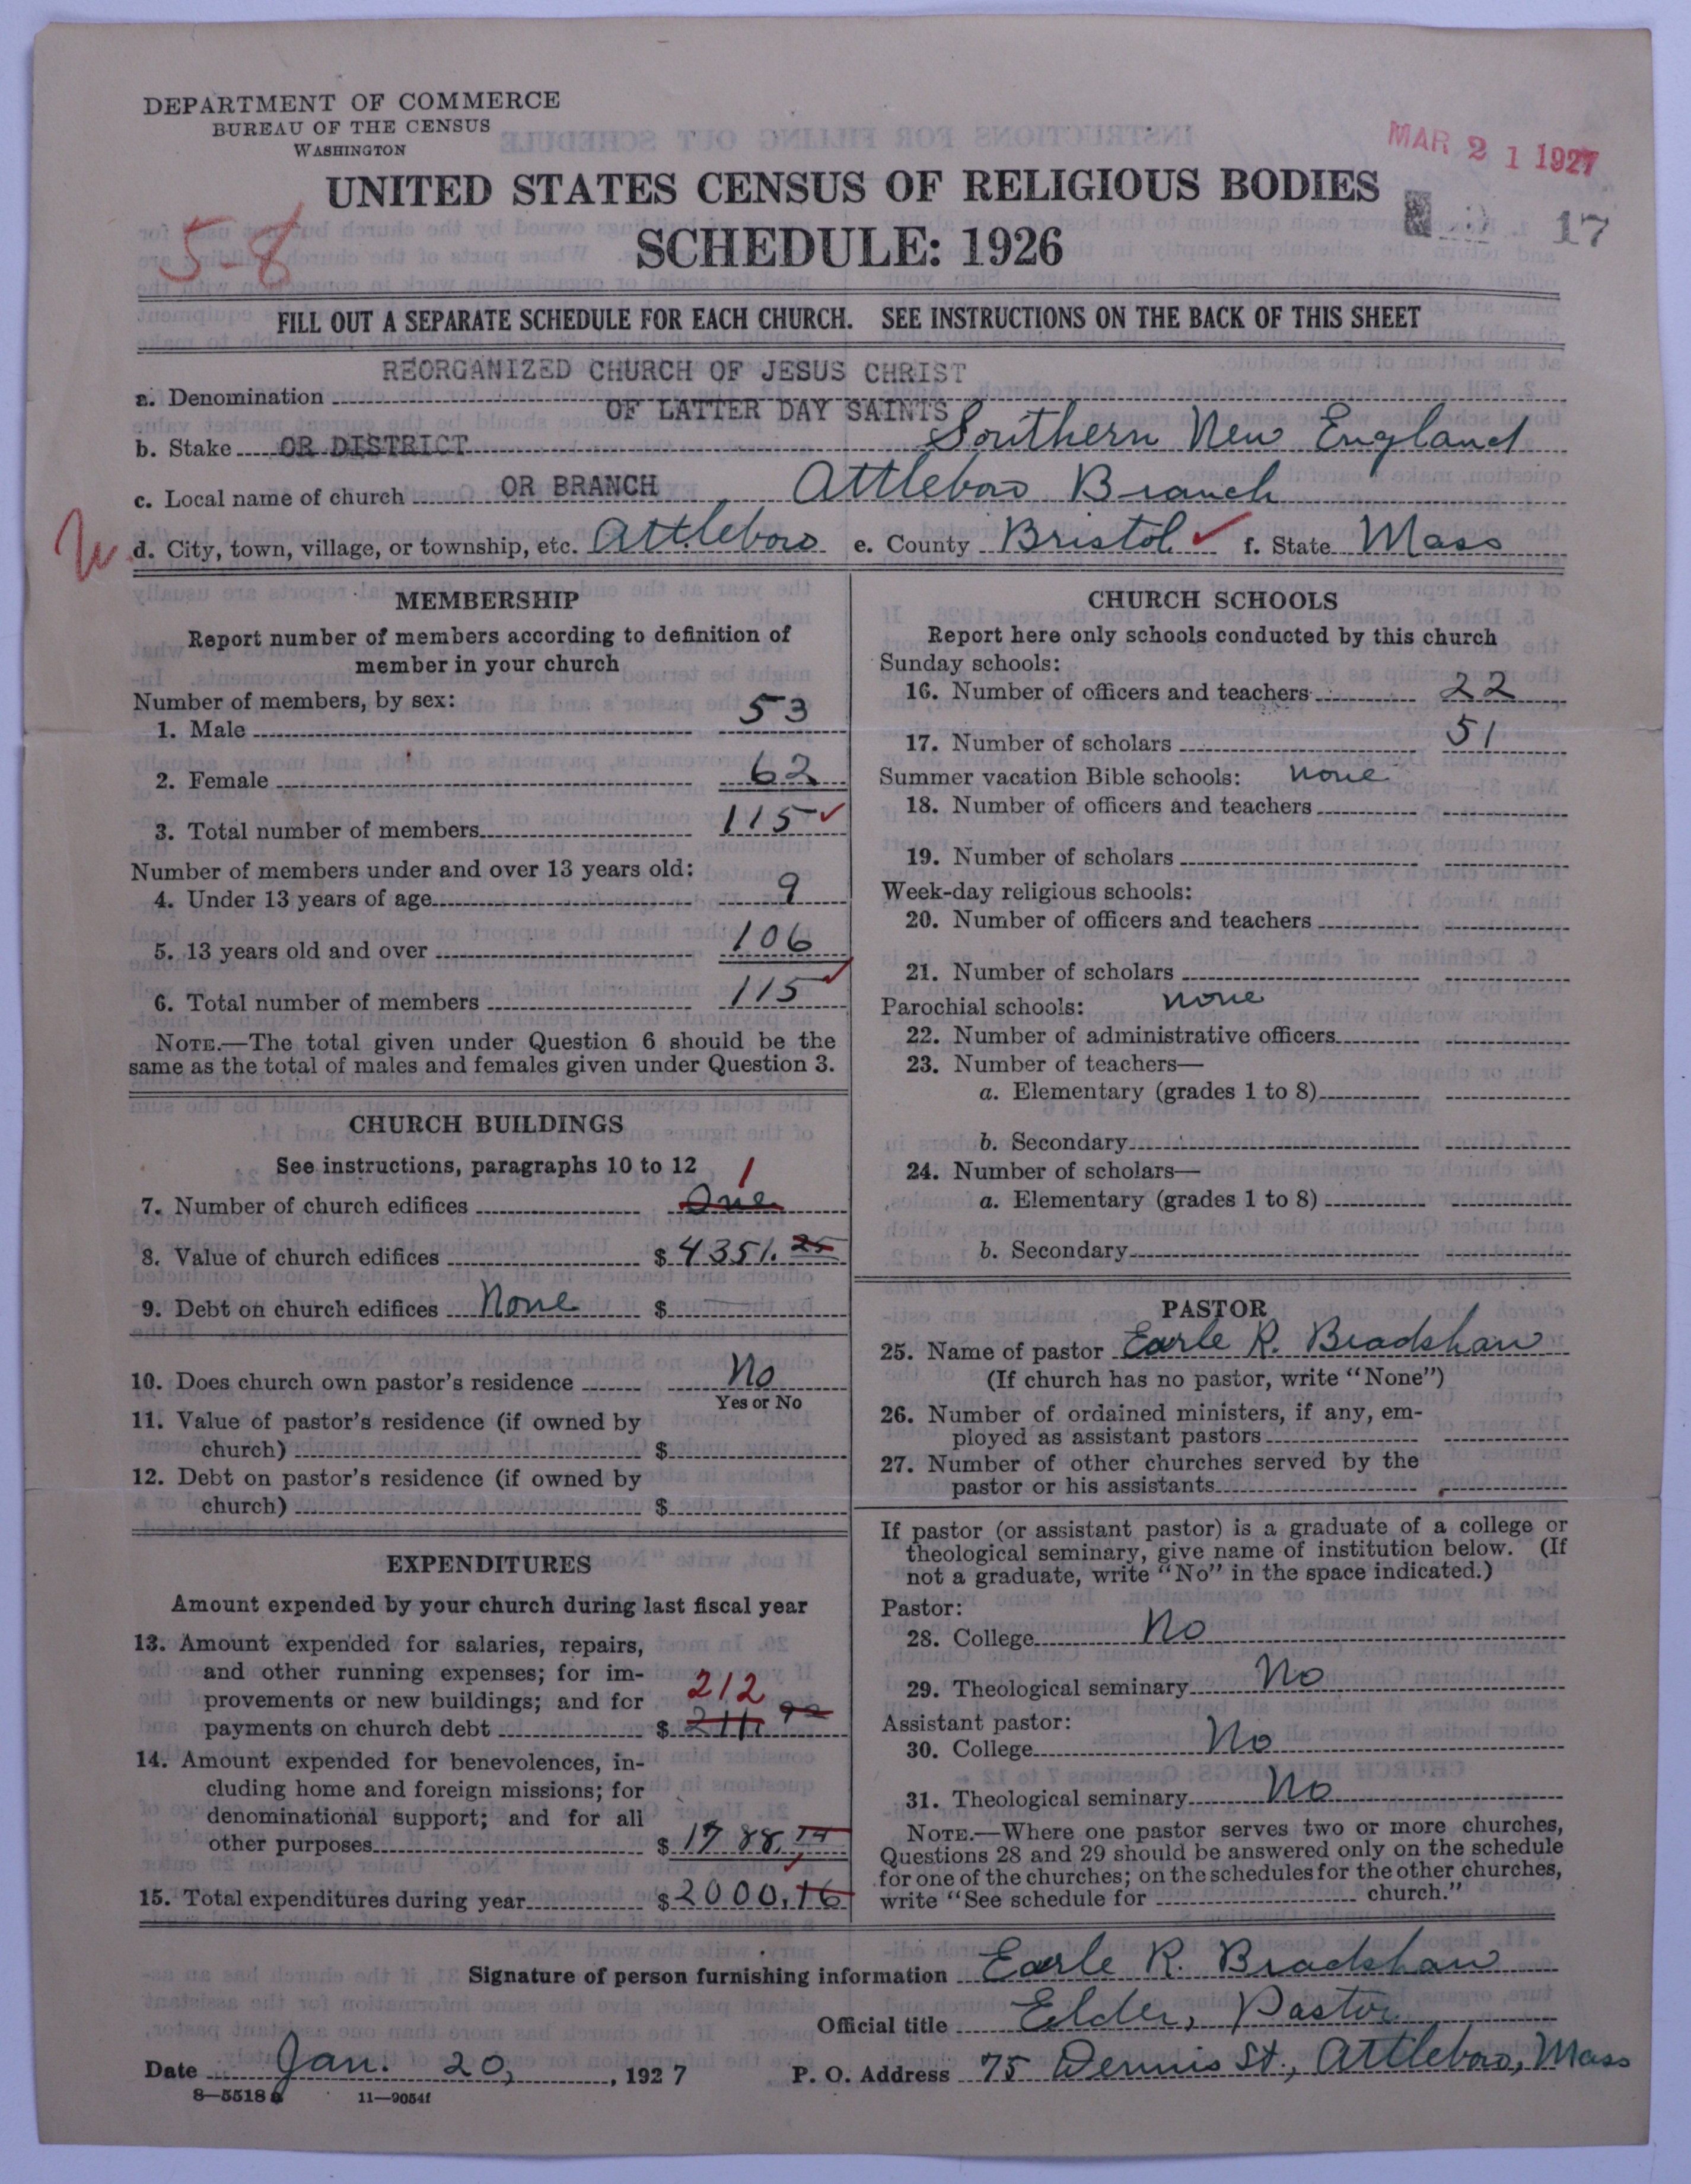 DEPARTMENT OF COMMERCE
BUREAU OF THE CENSUS
WASHINGTON
MAR 21 1927
UNITED STATES CENSUS OF RELIGIOUS BODIES
17
5-8
SCHEDULE: 1926
FILL OUT A SEPARATE SCHEDULE FOR EACH CHURCH. SEE INSTRUCTIONS ON THE BACK OF THIS SHEET
REORGANIZED CHURCH OF JESUS CHRIST
a. Denomination
OF LATTER DAY SAINTS
b. Stake OR DISTRICT Southern New England
c. Local name of church OR BRANCH Attleboro Branch
d. City, town, village, or township, etc. Attleboro e. County Bristol ✓ f. State Mass
MEMBERSHIP
Report number of members according to definition of
member in your church
Number of members, by sex:
1. Male 53
2. Female 62
3. Total number of members 115 ✓
Number of members under and over 13 years old:
4. Under 13 years of age 9
5. 13 years old and over 106
6. Total number of members 115 ✓
NOTE.—The total given under Question 6 should be the
same as the total of males and females given under Question 3.
CHURCH BUILDINGS
See instructions, paragraphs 10 to 12
1
7. Number of church edifices One
8. Value of church edifices $ 4351.25
9. Debt on church edifices None $
10. Does church own pastor's residence No
Yes or No
11. Value of pastor's residence (if owned by
church) $
12. Debt on pastor's residence (if owned by
church) $
EXPENDITURES
Amount expended by your church during last fiscal year
13. Amount expended for salaries, repairs,
and other running expenses; for im-
provements or new buildings; and for 212
payments on church debt $ 211.92
14. Amount expended for benevolences, in-
cluding home and foreign missions; for
denominational support; and for all
other purposes $ 1788.74
15. Total expenditures during year $ 2000.16
CHURCH SCHOOLS
Report here only schools conducted by this church
Sunday schools:
16. Number of officers and teachers 22
17. Number of scholars 51
Summer vacation Bible schools: none
18. Number of officers and teachers
19. Number of scholars
Week-day religious schools:
20. Number of officers and teachers
21. Number of scholars
Parochial schools: none
22. Number of administrative officers
23. Number of teachers—
a. Elementary (grades 1 to 8)
b. Secondary
24. Number of scholars—
a. Elementary (grades 1 to 8)
b. Secondary
PASTOR
25. Name of pastor Earle R. Bradshaw
(If church has no pastor, write "None")
26. Number of ordained ministers, if any, em-
ployed as assistant pastors
27. Number of other churches served by the
pastor or his assistants
If pastor (or assistant pastor) is a graduate of a college or
theological seminary, give name of institution below. (If
not a graduate, write "No" in the space indicated.)
Pastor:
28. College No
29. Theological seminary No
Assistant pastor:
30. College No
31. Theological seminary No
NOTE.—Where one pastor serves two or more churches,
Questions 28 and 29 should be answered only on the schedule
for one of the churches; on the schedules for the other churches,
write "See schedule for church."
Signature of person furnishing information Earle R. Bradshaw
Official title Elder, Pastor
Date Jan. 20, 1927 P. O. Address 75 Dennis St., Attleboro, Mass
8—5518 11—9054f